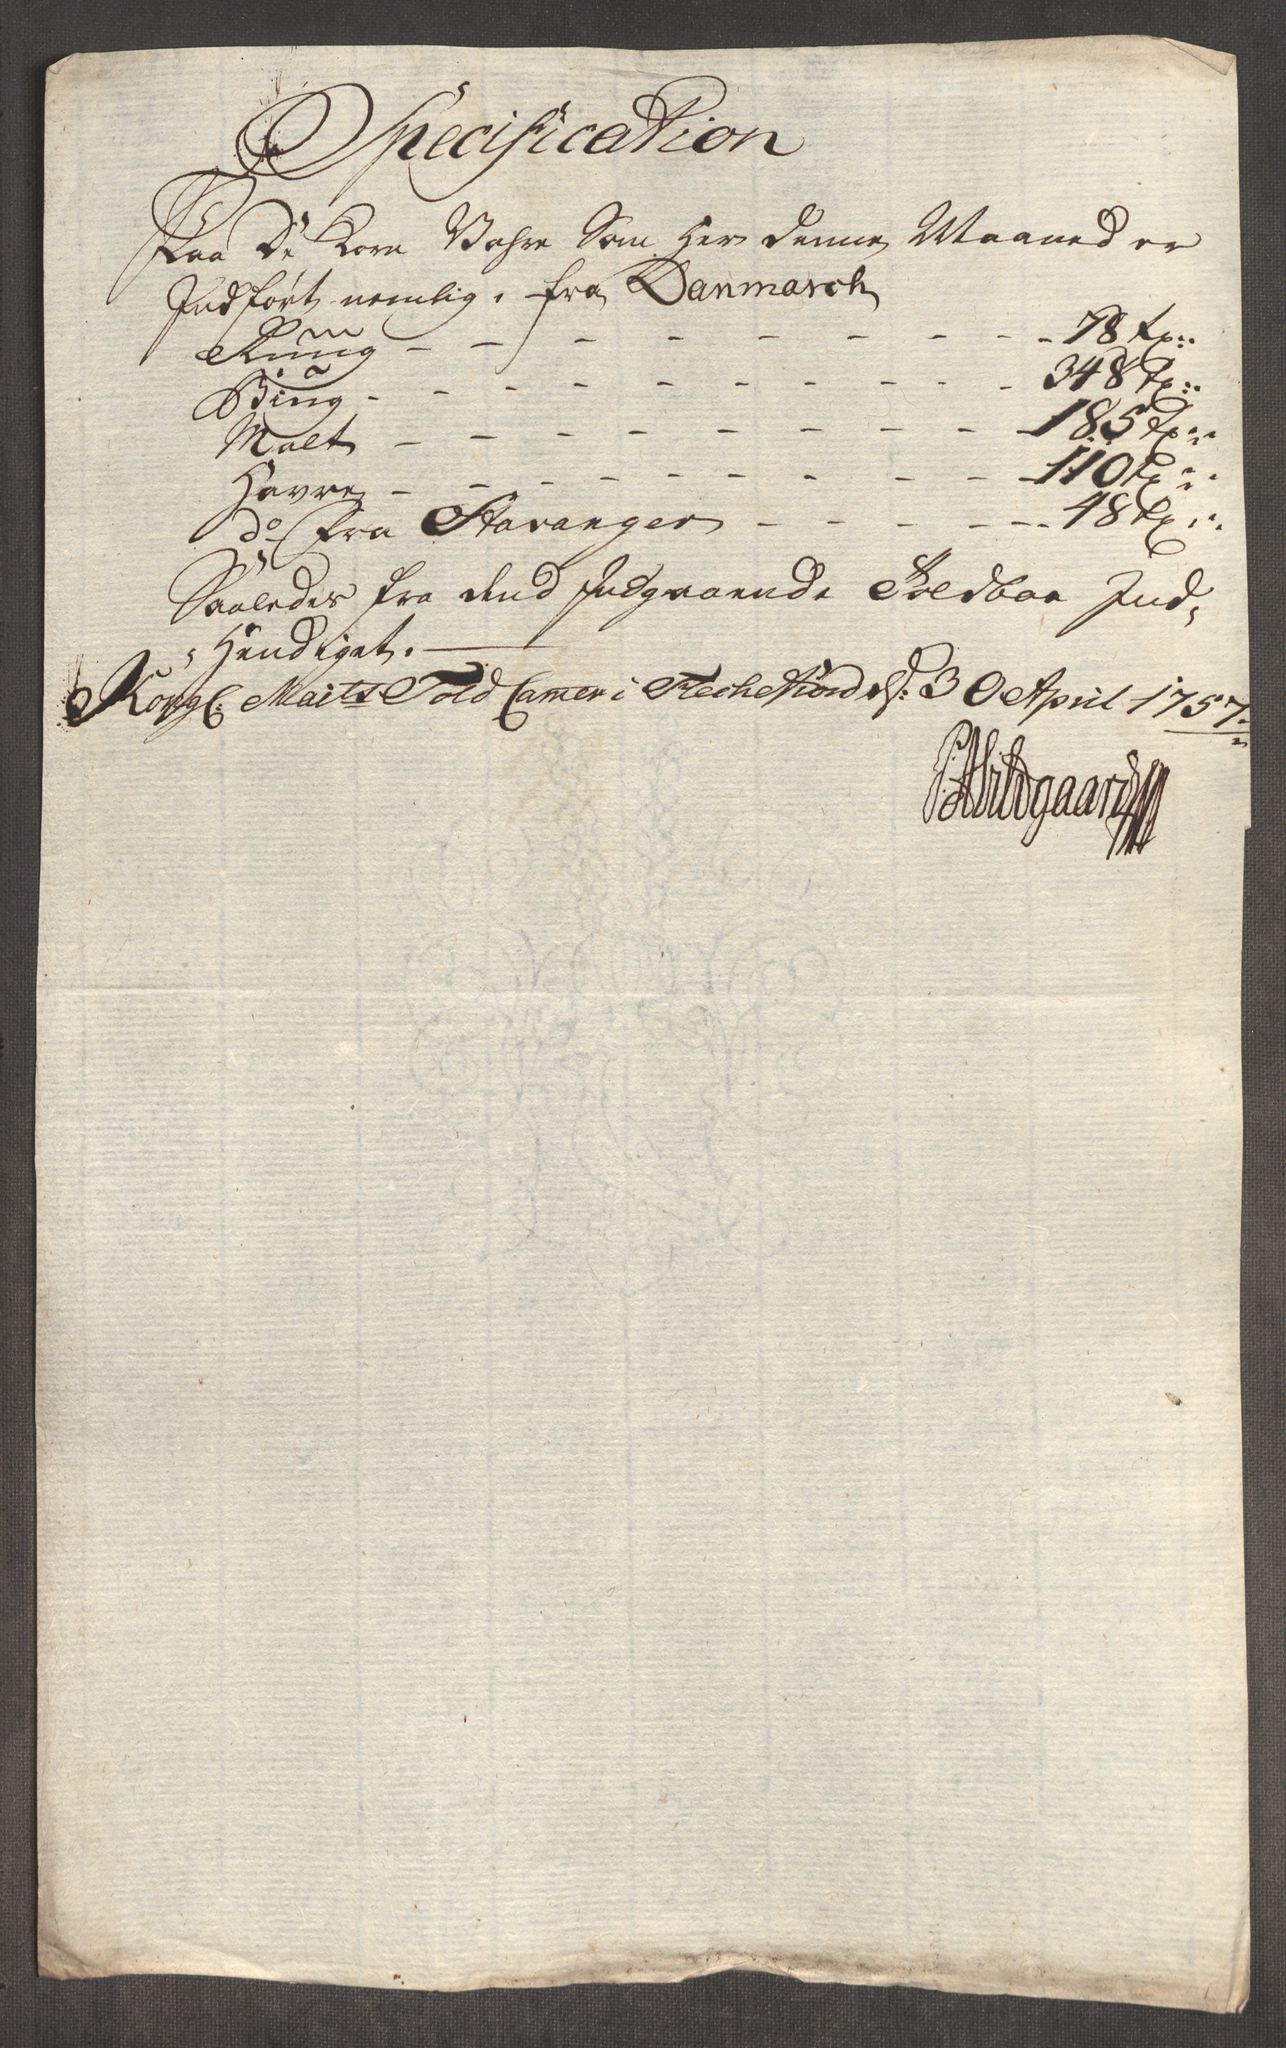 Specification
Paa De Korn Vahre Som her denne Maaned er
Indført nemlig, fra Danmarch
Rüug - - - - - - - - - 78 Tr:
Biug - - - - - - - - - 348 Tr:
Malt - - - - - - - - - 185 Tr:
Havre - - - - - - - - - 110 Tr:
do fra Stavanger - - - - - 48 Tr:
Saaledes fra dend Indgaaende Toldboe Ind,
, Hendiget.
Kongl: Maits Told Camer i Flechefiord d: 30 April 1757
P: Abildgaard